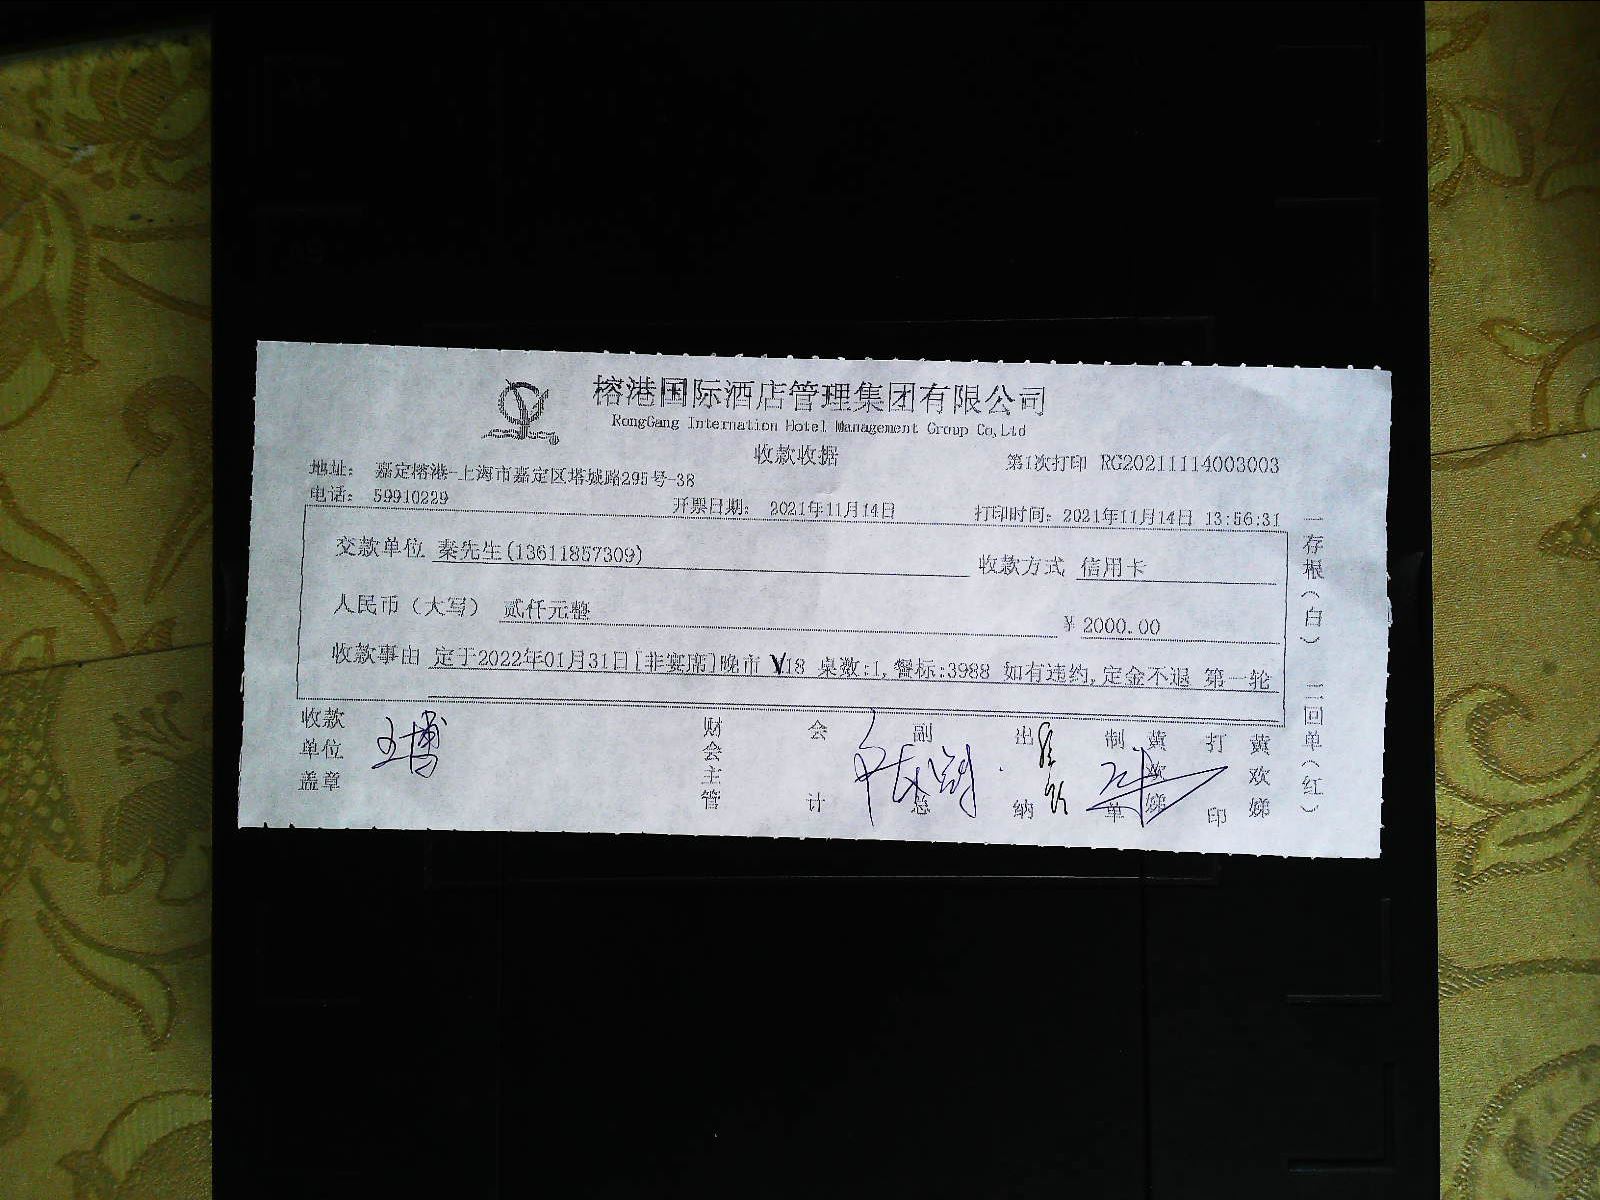 榕港国际酒店管理集团有限公司
RongGang Internation Hotel Management Group Co,Ltd
收款收据
第1次打印 RG20211114003003
地址: 嘉定榕港-上海市嘉定区塔城路295号-38
电话: 59910229
开票日期: 2021年11月14日
打印时间: 2021年11月14日 13:56:31
交款单位 秦先生(13611857309)
收款方式 信用卡
人民币（大写） 贰仟元整
¥ 2000.00
收款事由 定于2022年01月31日[非宴席]晚市 V18 桌数:1,餐标:3988 如有违约,定金不退 第一轮
收款单位盖章
王博
财会主管
会计
副总
出纳
制单 黄欢娣
打印 黄欢娣
一存根（白） 二回单（红）